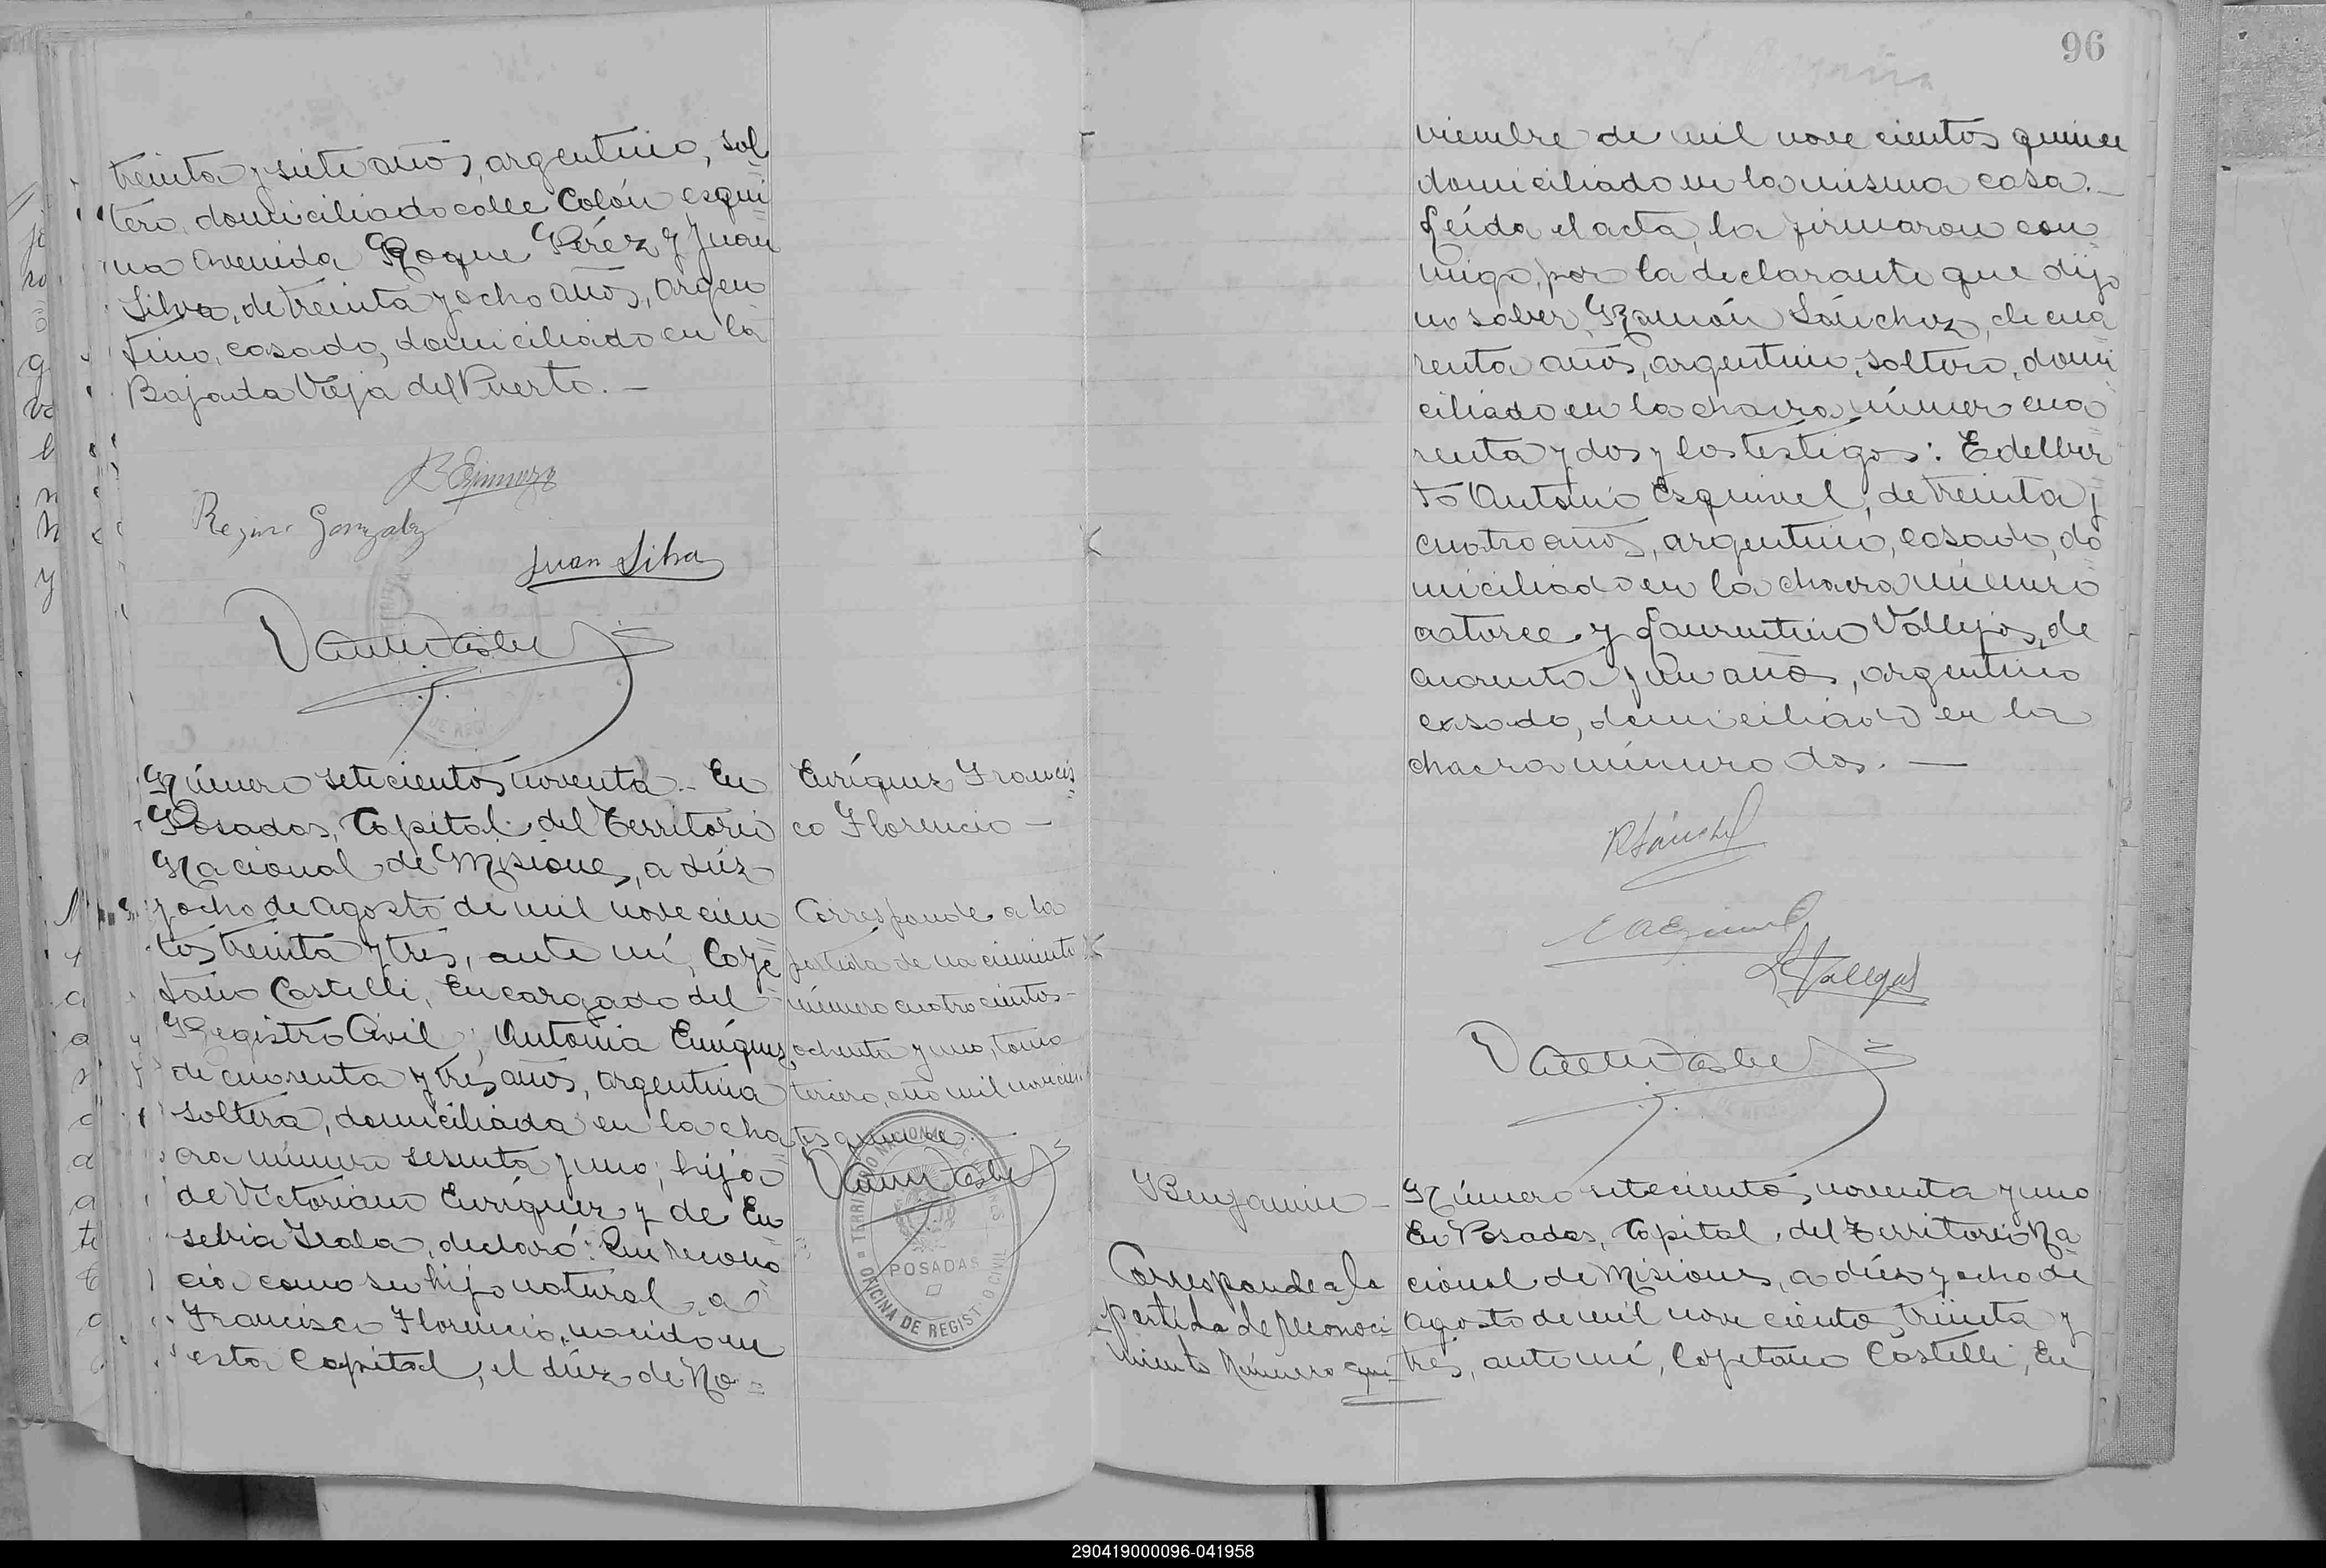 treinta y siete años, argentino, sol
tero, domiciliado calle Colón esqui
na Avenida Roque Pérez y Juan
Silva, de treinta y ocho años, argen
tino, casado, domiciliado en la
Bajada Vieja del Puerto. —
Regino Gonzalez
Juan Silva
Número setecientos noventa. - En
Posadas, Capital del Territorio
Nacional de Misiones, a diez
y ocho de Agosto de mil novecien
tos treinta y tres, ante mí, Caye
tano Castelli, Encargado del
Registro Civil; Antonia Enríquez
de cuarenta y tres años, argentina
soltera, domiciliada en la cha
cra número sesenta y uno; hija
de Victoriano Enríquez y de Eu
sebia Irala, declaró: Que recono
cía como su hijo natural, a
Francisco Florencio, nacido en
esta Capital, el diez de No
Enríquez Francis
co Florencio —
Corresponde a la
partida de nacimiento
número cuatrocientos
ochenta y uno, tomo
tercero, año mil novecien
tos quince
TERRITORIO NACIONAL DE MISIONES
POSADAS
OFICINA DE REGISTRO CIVIL
96
viembre de mil novecientos quince
domiciliado en la misma casa. —
Leída el acta, la firmaron con
migo, por la declarante que dijo
no saber, Ramón Sánchez, de cua
renta años, argentino, soltero, domi
ciliado en la chacra número cua
renta y dos y los testigos: Edelber
to Antonio Esquivel, de treinta y
cuatro años, argentino, casado, do
miciliado en la chacra número
catorce y Laurentino Vallejos, de
cuarenta y un años, argentino
casado, domiciliado en la
chacra número dos. —
R Sánchez
L Vallejos
Benjamin —
Corresponde a la
partida de reconoci
miento Número qui
Número setecientos noventa y uno
En Posadas, Capital del Territorio Na
cional de Misiones, a diez y ocho de
Agosto de mil novecientos treinta y
tres, ante mí, Cayetano Castelli, En
290419000096-041958